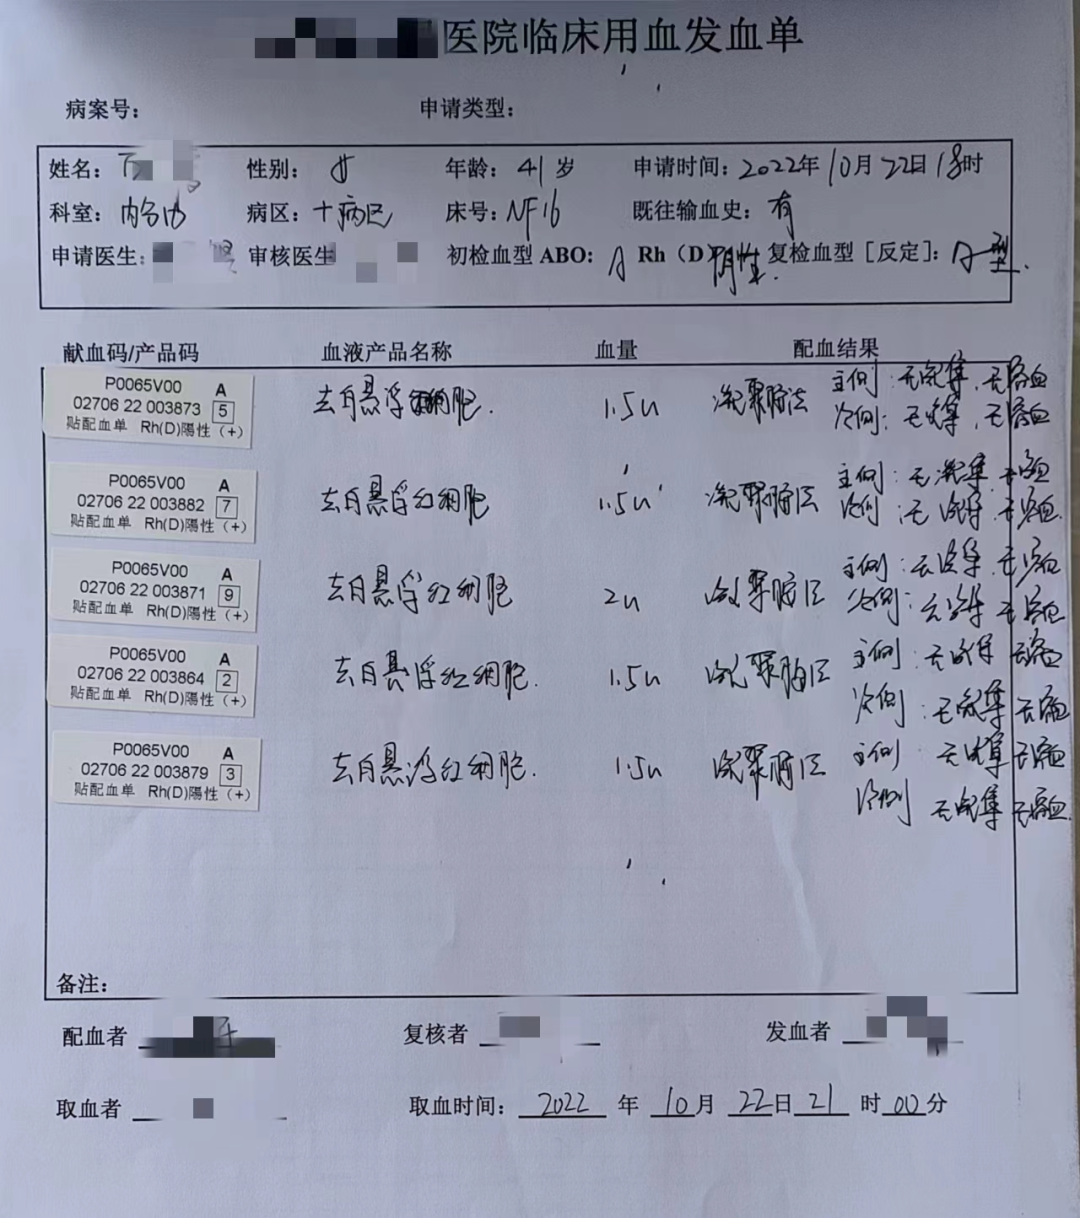 医院临床用血发血单
病案号: 申请类型:
姓名: 性别: 女 年龄: 41岁 申请时间: 2022年10月22日18时
科室: 内分泌 病区: 十病区 床号: NF16 既往输血史: 有
申请医生: 审核医生 初检血型 ABO: A Rh（D）阴性. 复检血型［反定］: A型.
献血码/产品码 血液产品名称 血量 配血结果
P0065V00 A
02706 22 003873 5
贴配血单 Rh(D)陽性 (+)
去白悬浮红细胞. 1.5u 凝聚胺法 主侧: 无凝集, 无溶血
次侧: 无凝集, 无溶血
P0065V00 A
02706 22 003882 7
贴配血单 Rh(D)陽性 (+)
去白悬浮红细胞 1.5u 凝聚胺法 主侧: 无凝集 无溶血
次侧: 无凝集 无溶血
P0065V00 A
02706 22 003871 9
贴配血单 Rh(D)陽性 (+)
去白悬浮红细胞 2u 凝聚胺法 主侧: 无凝集 无溶血
次侧: 无凝集 无溶血
P0065V00 A
02706 22 003864 2
贴配血单 Rh(D)陽性 (+)
去白悬浮红细胞. 1.5u 凝聚胺法 主侧: 无凝集 无溶血
次侧: 无凝集 无溶血
P0065V00 A
02706 22 003879 3
贴配血单 Rh(D)陽性 (+)
去白悬浮红细胞. 1.5u 凝聚胺法 主侧 无凝集 无溶血
次侧 无凝集 无溶血.
备注:
配血者 复核者 发血者
取血者 取血时间: 2022 年 10月 22日21 时00分